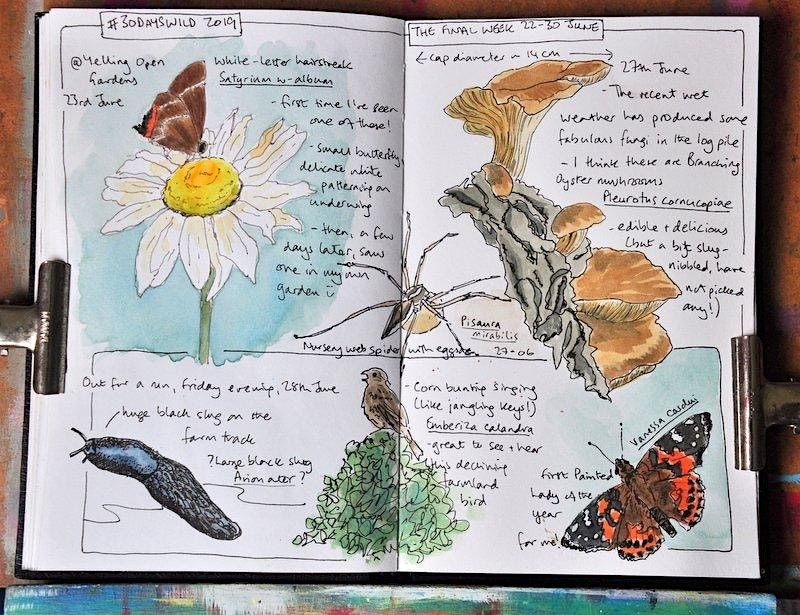 #30DAYSWILD 2019
@Yelling Open
Gardens
23rd June
White-letter hairstreak
Satyrium w-album
- first time I've seen
one of these!
- small butterfly,
delicate white
patterning on
underwing
- then, a few
days later, saw
one in my own
garden :)
Nursery web spider with eggsac
Pisaura
mirabilis
27-06
Out for a run, Friday evening, 28th June
huge black slug on the
farm track
?Large black slug
Arion ater?
THE FINAL WEEK 22-30 JUNE
← cap diameter ~ 14cm →
27th June
- The recent wet
weather has produced some
fabulous fungi in the log pile
- I think these are Branching
Oyster mushrooms
Pleurotus cornucopiae
- edible + delicious
(but a bit slug-
nibbled, have
not picked
any!)
- Corn bunting singing
(like jangling keys!)
Emberiza calandra
- great to see + hear
this declining
farmland
bird
Vanessa cardui
First Painted
Lady of the
year
for me!